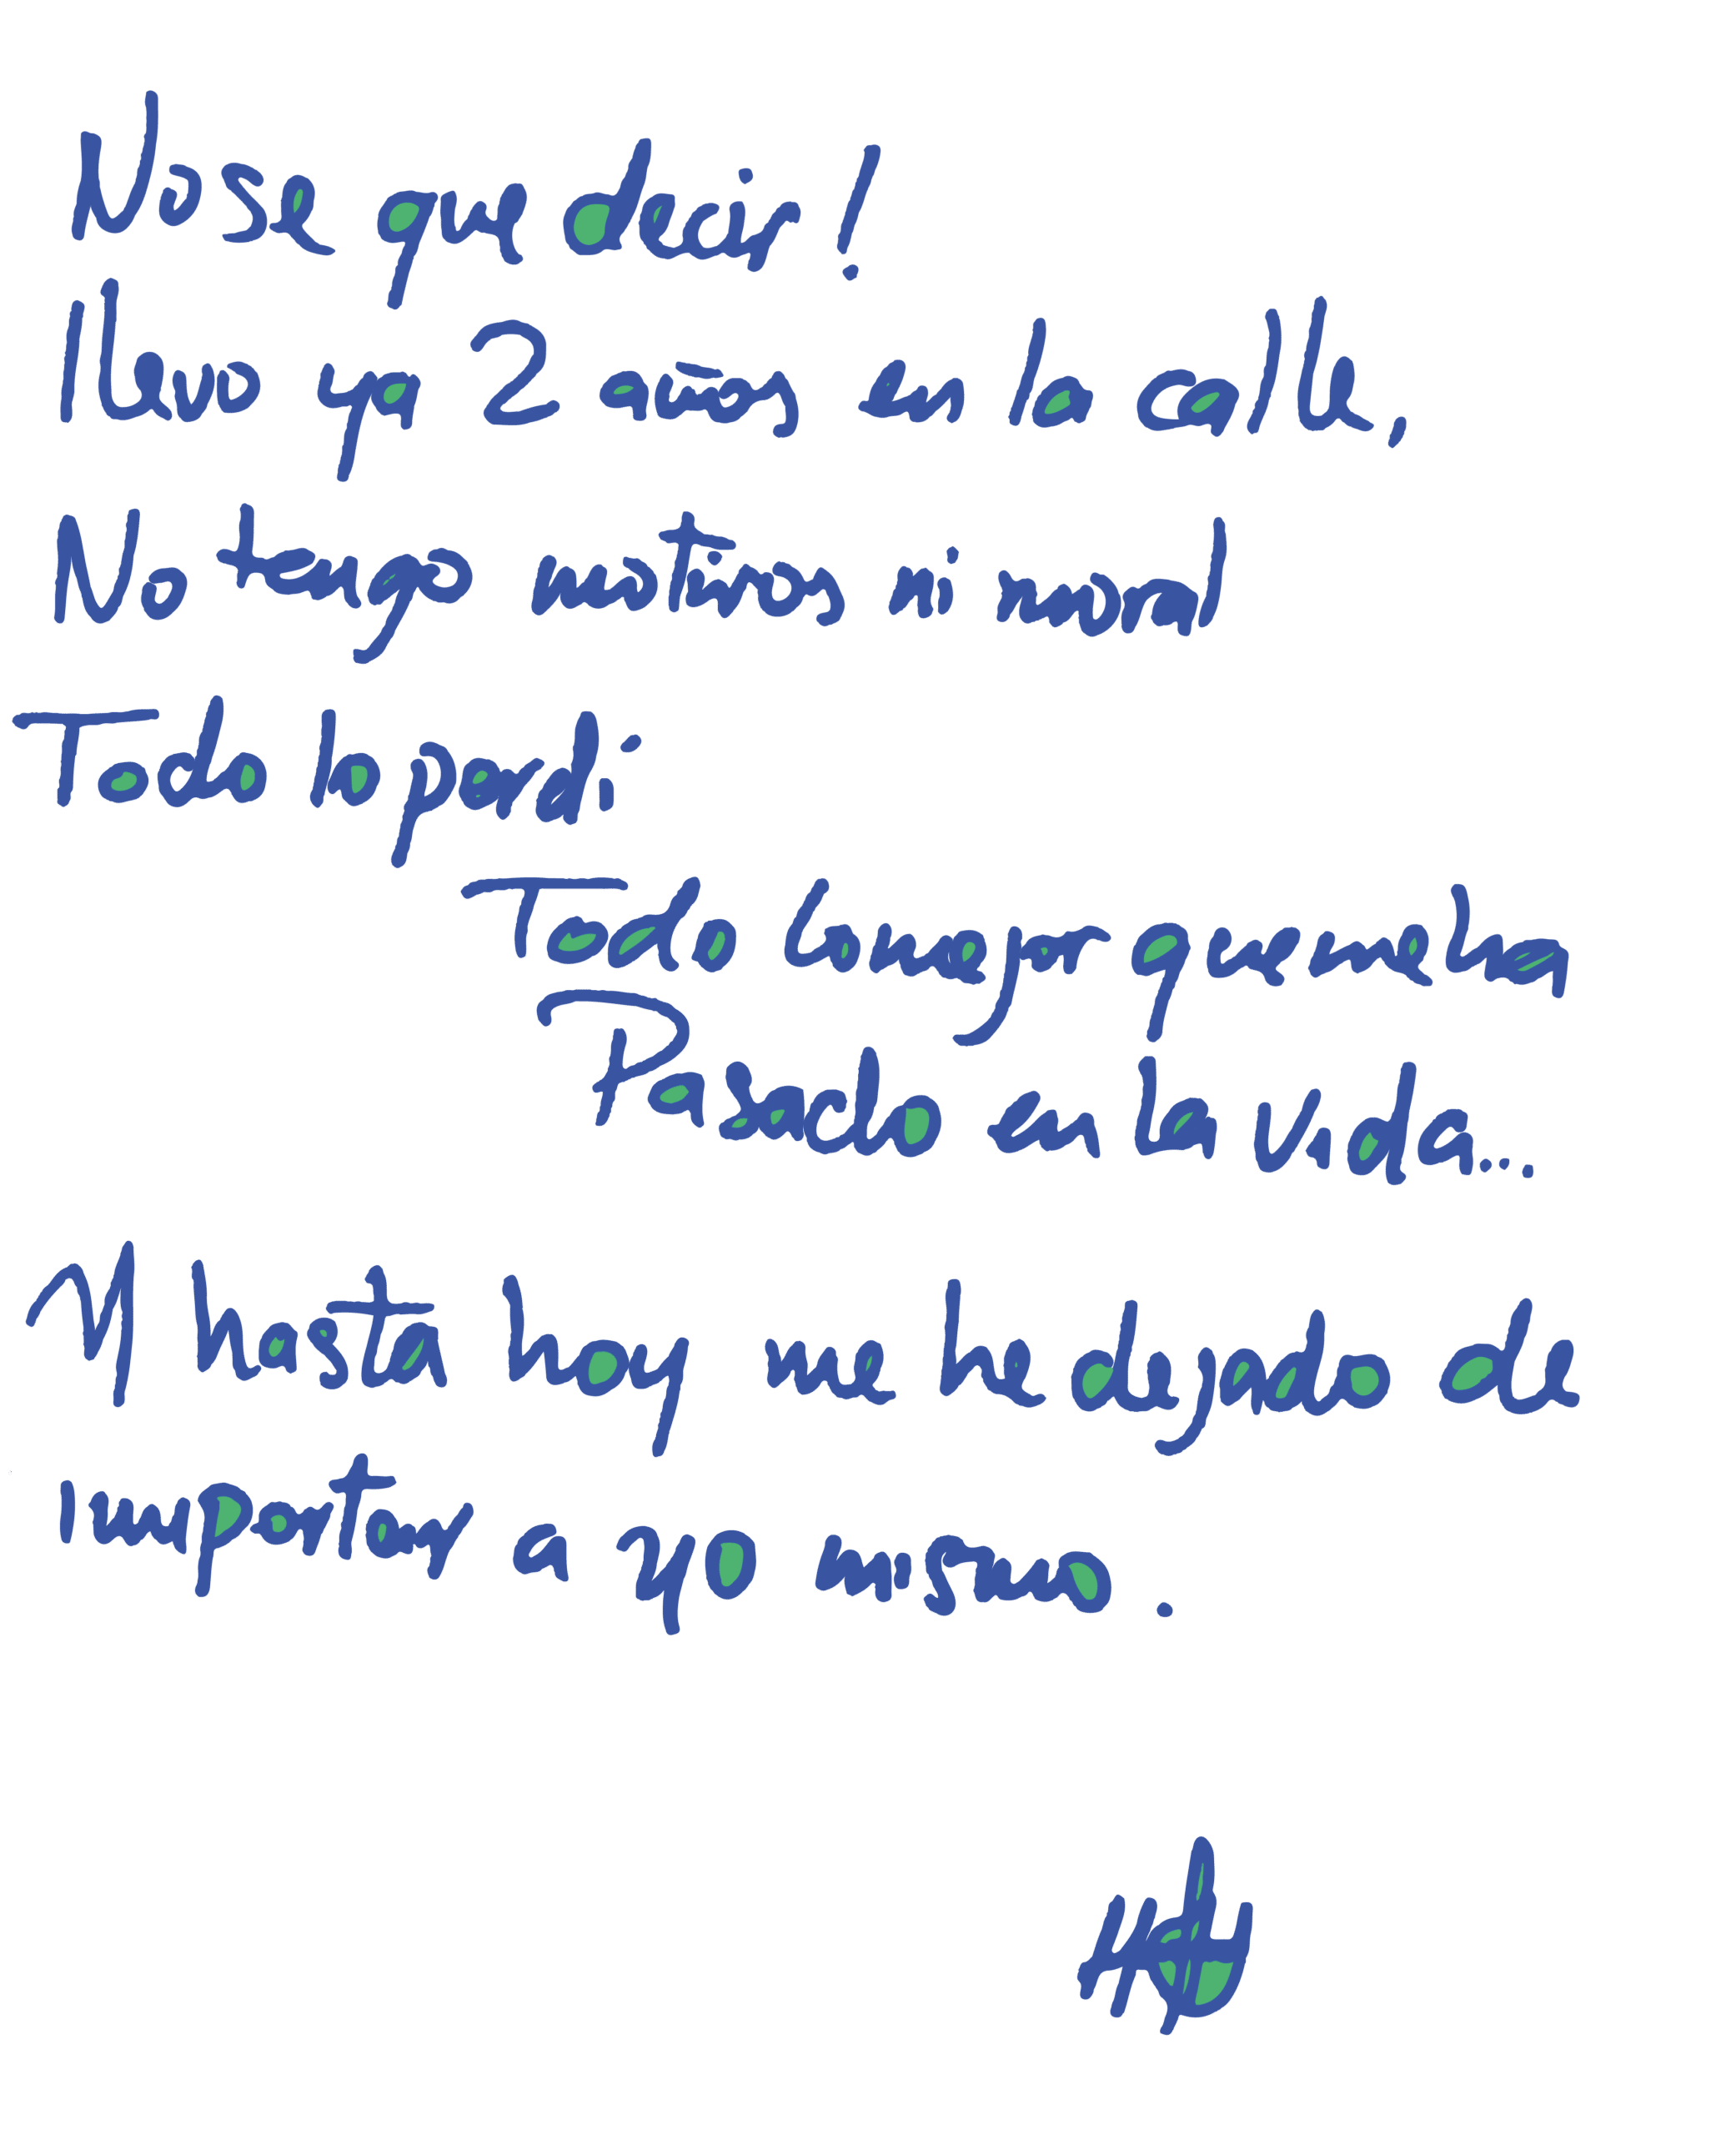 No se que decir!
llevo ya 2 años en la calle,
No tengo nuestros ni mal
Todo lo perdi
Todo lo mejor que me ha
Pasado en la vida...
Y hasta hoy me he dejado de
importar a yo mismo.